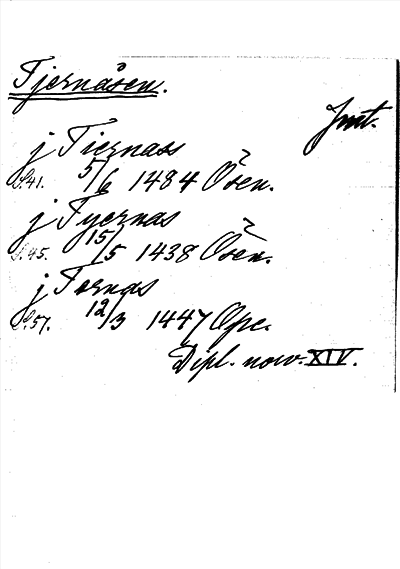 Tjernåsen.
Jmt.
j Tiernass
S.41. 5/6 1484 Ösen.
j Tyernas
S.45. 15/5 1438 Ösen.
j Tornas
S.57. 12/3 1447 Opr.
Dipl. norv. XIV.